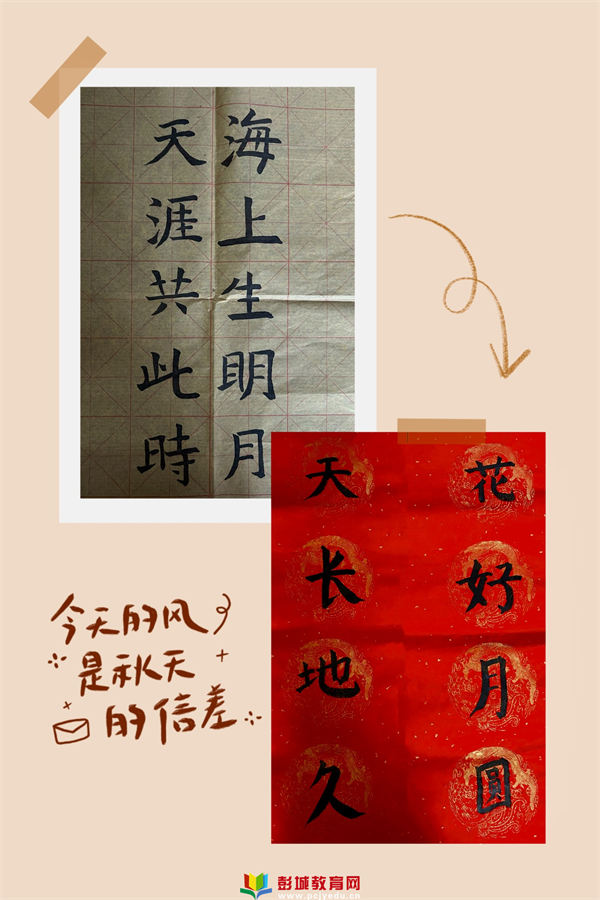 海上生明月
天涯共此時
花好月圓
天长地久
今天的风
是秋天
的信差
彭城教育网
www.pcjyedu.cn